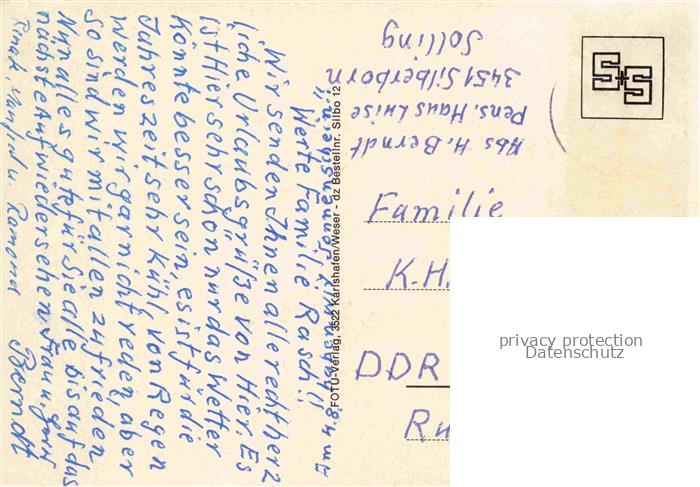 Werte Familie Rasch!!
Wir senden Ihnen alle recht herz
liche Urlaubsgrüße von Hier. Es
ist Hier sehr schon nur das Wetter
könnte besser sein, es ist für die
Jahreszeit sehr Kühl, von Regen
werden wir gar nicht reden, aber
so sind wir mit allen zufrieden
Nun alles gute für Sie alle bis auf das
nächste Aufwiedersehen
Manfred u. Ramona Berndt
FOTO-Verlag, 3522 Karlshafen/Weser - dz Bestellnr. Silbo 12
Abs H. Berndt
Pens. Haus Luise
3451 Silberborn
Solling
S+S
Familie
K.H.
DDR
Ru
privacy protection
Datenschutz